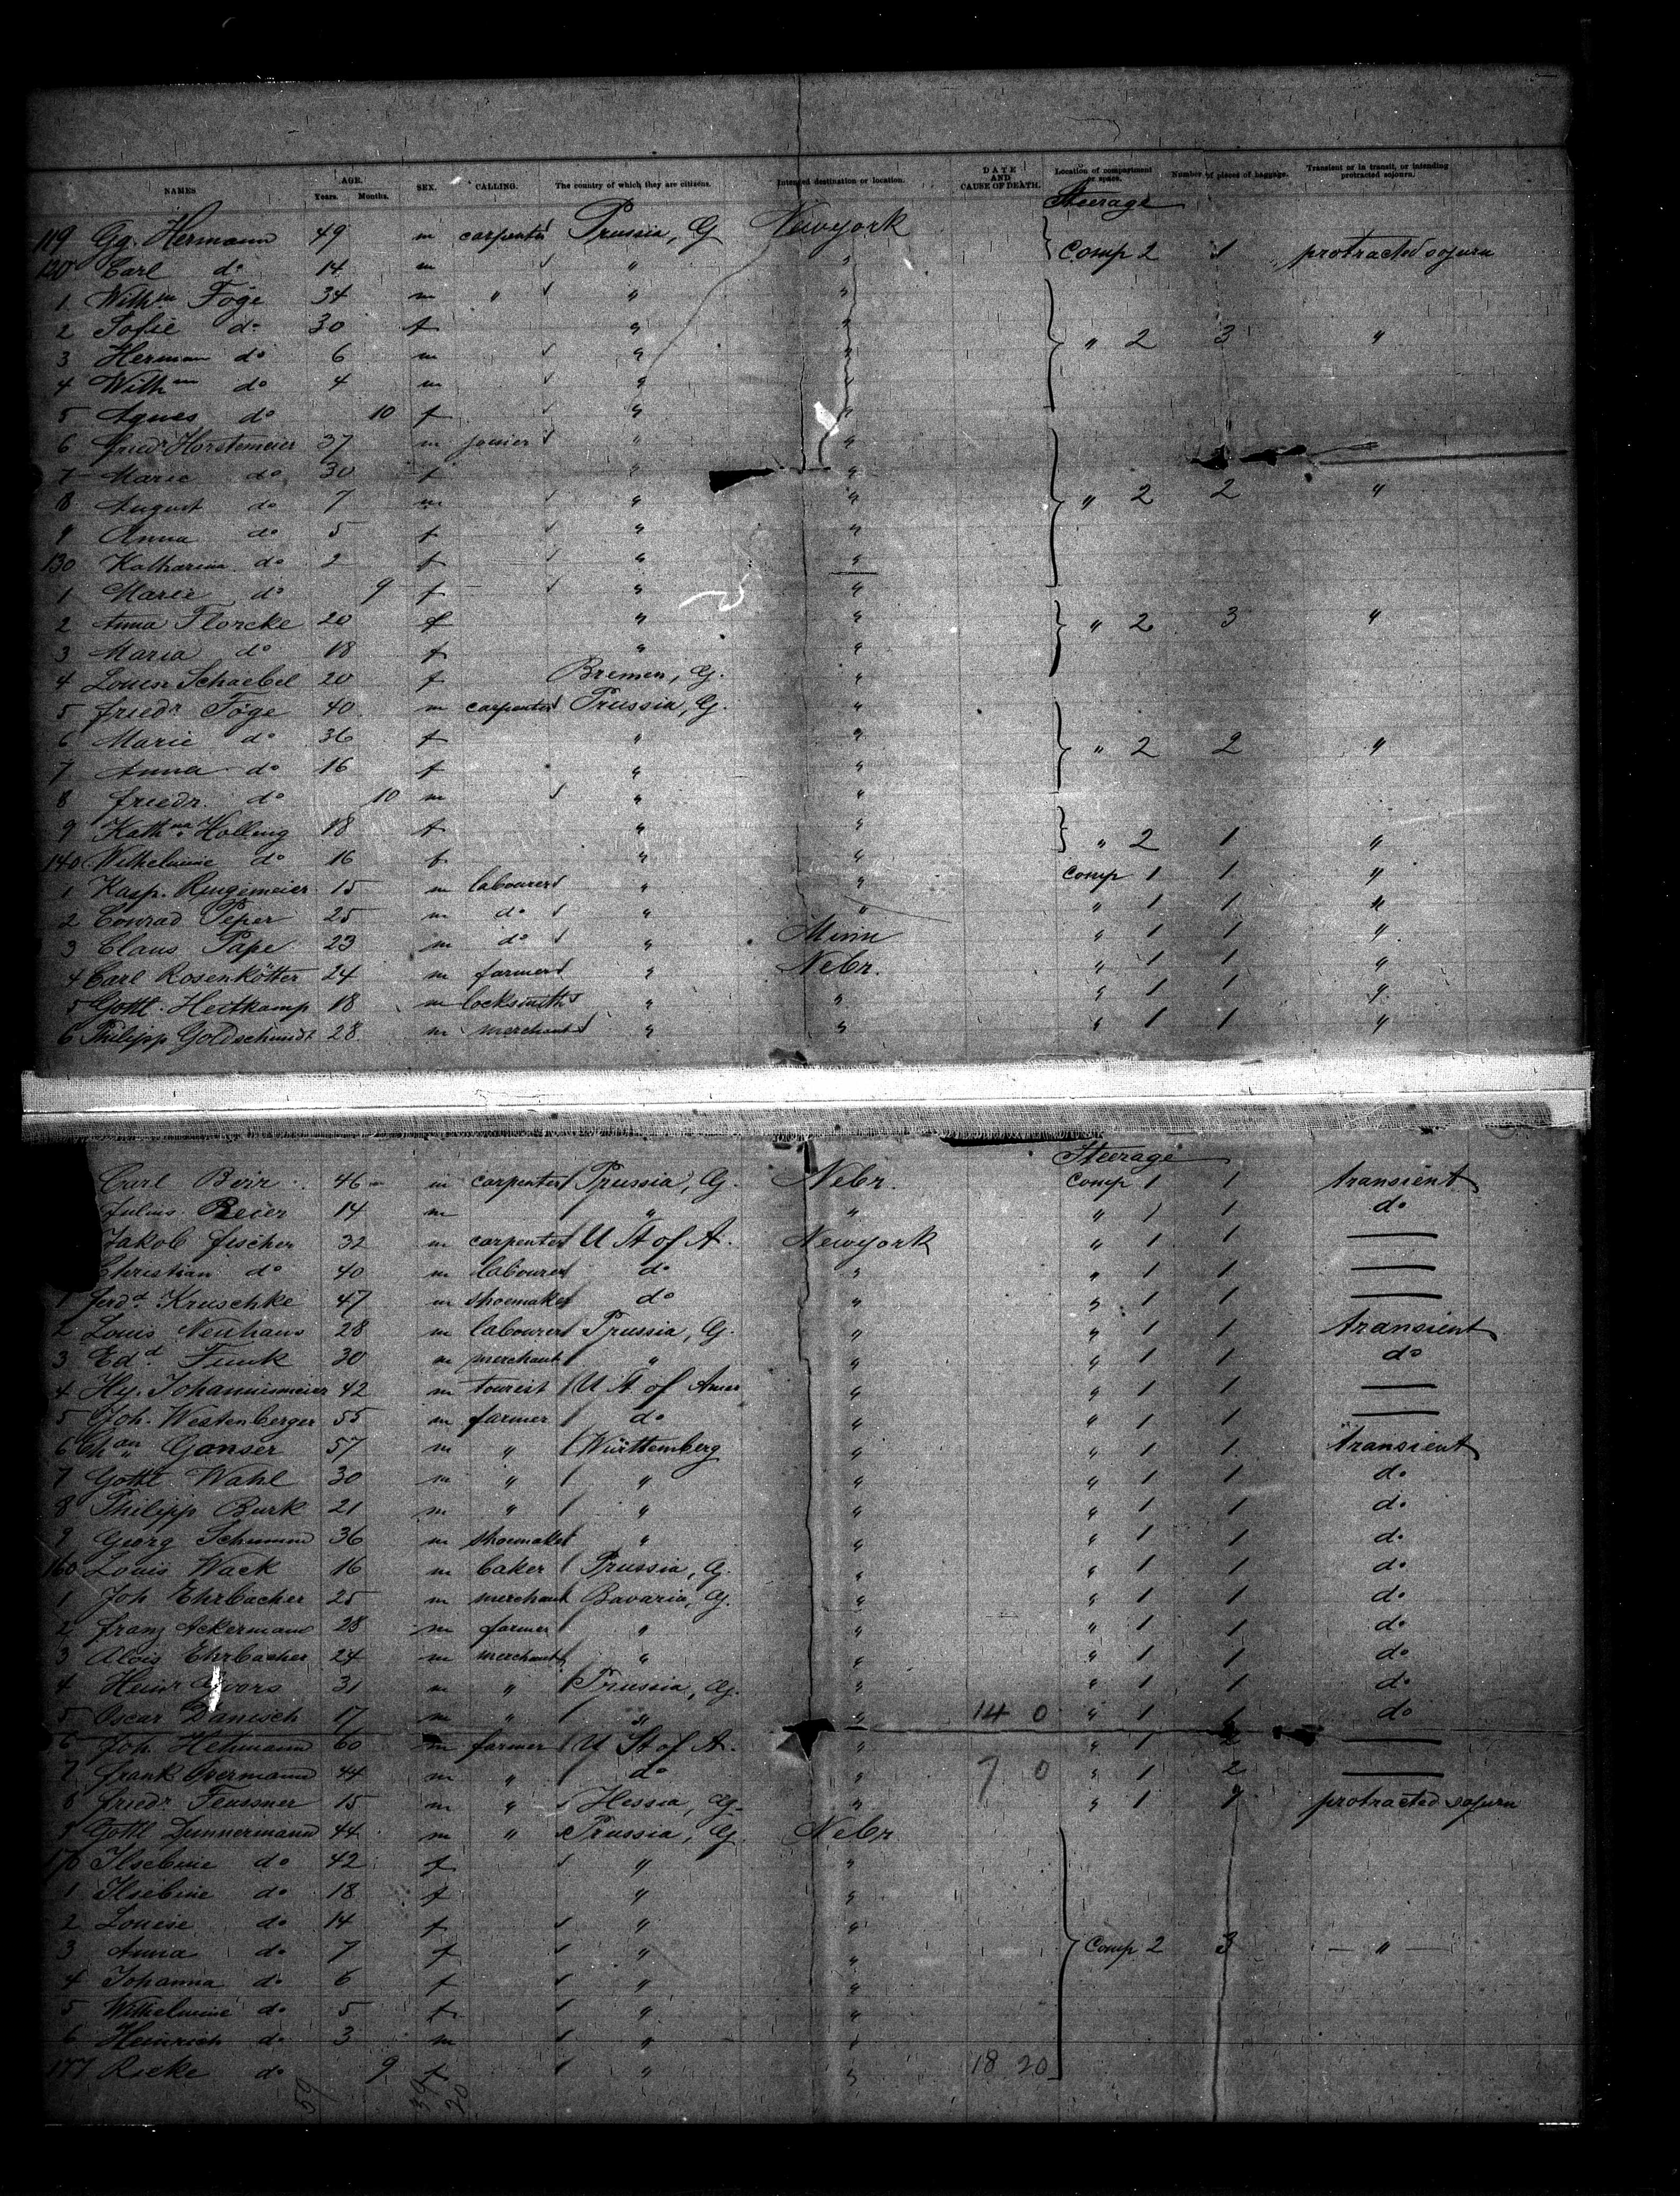 NAMES AGE. Years. Months. SEX. CALLING. The country of which they are citizens. Intended destination or location. DATE AND CAUSE OF DEATH. Location of compartment or space. Number of pieces of baggage. Transient or in transit, or intending protracted sojourn.
Steerage
119 Gg. Hermann 49 m carpenter Prussia, G Newyork Comp 2 1 protracted sojurn
120 Carl do 14 m " "
1 Wilhm Föge 34 m " " "
2 Sofie do 30 f " " " 2 3 "
3 Herman do 6 m " "
4 Wilhm do 4 m " "
5 Agnes do 10 f " "
6 Friedr Horstemeier 37 m joinier " "
7 Marie do 30 f " "
8 August do 7 m " " " 2 2 "
9 Anna do 5 f " "
130 Katharina do 2 f " "
1 Marie do 9 f " "
2 Anna Florcke 20 f " " " 2 3 "
3 Maria do 18 f " "
4 Louise Schaebel 20 f Bremen, G. "
5 Friedr Föge 40 m carpenter Prussia, G. "
6 Marie do 36 f " " " 2 2 "
7 Anna do 16 f " "
8 Friedr. do 10 m " "
9 Kathna Holling 18 f " " " 2 1 "
140 Wilhelmine do 16 f " "
1 Kasp. Ringemeier 15 m labourer " " Comp 1 1 "
2 Conrad Peper 25 m do " " " 1 1 "
3 Claus Pape 23 m do " Minn " 1 1 "
4 Carl Rosenkötter 24 m farmer " Nebr. " 1 1 "
5 Gottl. Heitkamp 18 m locksmith " " " 1 1 "
6 Philipp Goldschmidt 28 m merchant " " " 1 1 "
Steerage
Carl Beir 46 m carpenter Prussia, G. Nebr. Comp 1 1 transient
Julius Beier 14 m " " " 1 1 do
Jakob Fischer 32 m carpenter U St of A. Newyork " 1 1 —
Christian do 40 m labourer do " " 1 1 —
1 Ferdd Kruschke 47 m shoemaker do " " 1 1 —
2 Louis Neuhaus 28 m labourer Prussia, G. " " 1 1 transient
3 Edd. Funk 30 m merchant " " " 1 1 do
4 Hy. Johannismeier 42 m tourist U St of Amer " " 1 1 —
5 Joh. Westenberger 55 m farmer do " " 1 1 —
6 Chan Ganser 57 m " Württemberg " " 1 1 transient
7 Gottl Wahl 30 m " " " " 1 1 do
8 Philipp Burk 21 m " " " " 1 1 do
9 Georg Schumm 36 m shoemaker " " " 1 1 do
160 Louis Wack 16 m baker Prussia, G. " " 1 1 do
1 Joh Ehrbacher 25 m merchant Bavaria, G. " " 1 1 do
2 Franz Ackermann 28 m farmer " " " 1 1 do
3 Alois Ehrbacher 24 m merchant " " " 1 1 do
4 Heinr 31 m " Prussia, G. " " 1 1 do
5 Oscar Danisch 17 m " " " 14 0 " 1 1 do
6 Joh. Hehmann 60 m farmer U St of A. " " 1 2 —
7 Frank Overmann 44 m " do " 7 0 " 1 2 —
8 Friedr Feussner 15 m " Hessia, G. " " 1 protracted sojurn
9 Gottl Zimmermann 44 m " Prussia, G. Nebr
170 Ilsebine do 42 f " "
1 Ilsebine do 18 f " "
2 Louise do 14 f " "
3 Anna do 7 f " " Comp 2 3 — " —
4 Johanna do 6 f " "
5 Wilhelmine do 5 f " "
6 Heinrich do 3 m " "
177 Rieke do 9 f " " 18 20
59 39 20